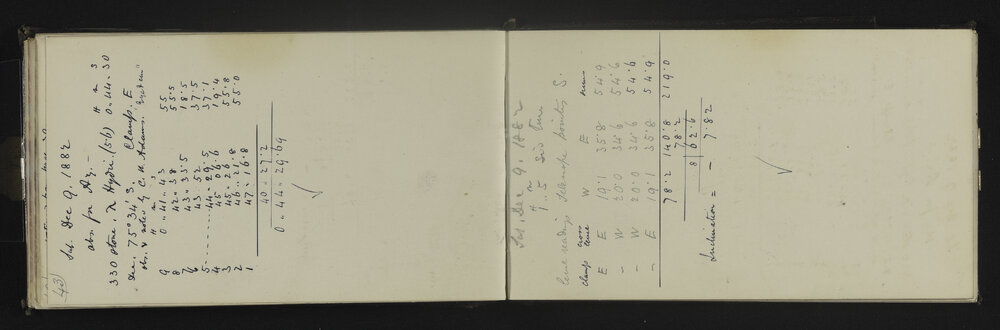 43
Sat. Dec 9. 1882
obs. for Az. –
330 stone. λ Hydri. (5b) 0.44.30
Dec. 75°34'S. Clamp. E
obs. & notes by C. H. Adams.
H m s
9 0.41.43 55
8 42.38 55.5
7 43.
6 43.52 37.5
5 ........ 44.29.5 37.1
4 45.06.6 19.4
3 45.26 55.8
2 46.21.8 55.0
1 47.16.8
40.27.2
0.44.29.69
✓
Sat. Dec 9. 1882
H m
1.5 Sid time
level readings Telescope pointing S.
clamp cross level W E sum
E E 19.1 35.8 54.9
– W 20.0 34.6 54.6
– W 20.0 34.6 54.6
– E 19.1 35.8 54.9
78.2 140.8 219.0
78.2
8 62.6
Inclination = – 7.82
✓